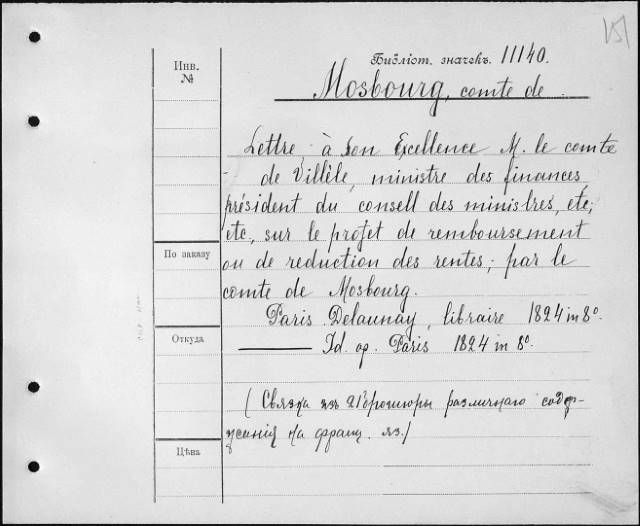 Инв.
№
Библіот. значекъ. 11140.
Mosbourg, comte de
Lettre à son Excellence M. le comte
de Villèle, ministre des finances
président du conseil des ministres, etc,
etc, sur le projet de remboursement
ou de reduction des rentes; par le
comte de Mosbourg.
Paris Delaunay, libraire 1824 in 8º.
Id. op. Paris 1824 in 8º.
(Связка изъ 21 брошюры различнаго содер-
жанія на франц. яз.)
По заказу
Откуда
Цѣна